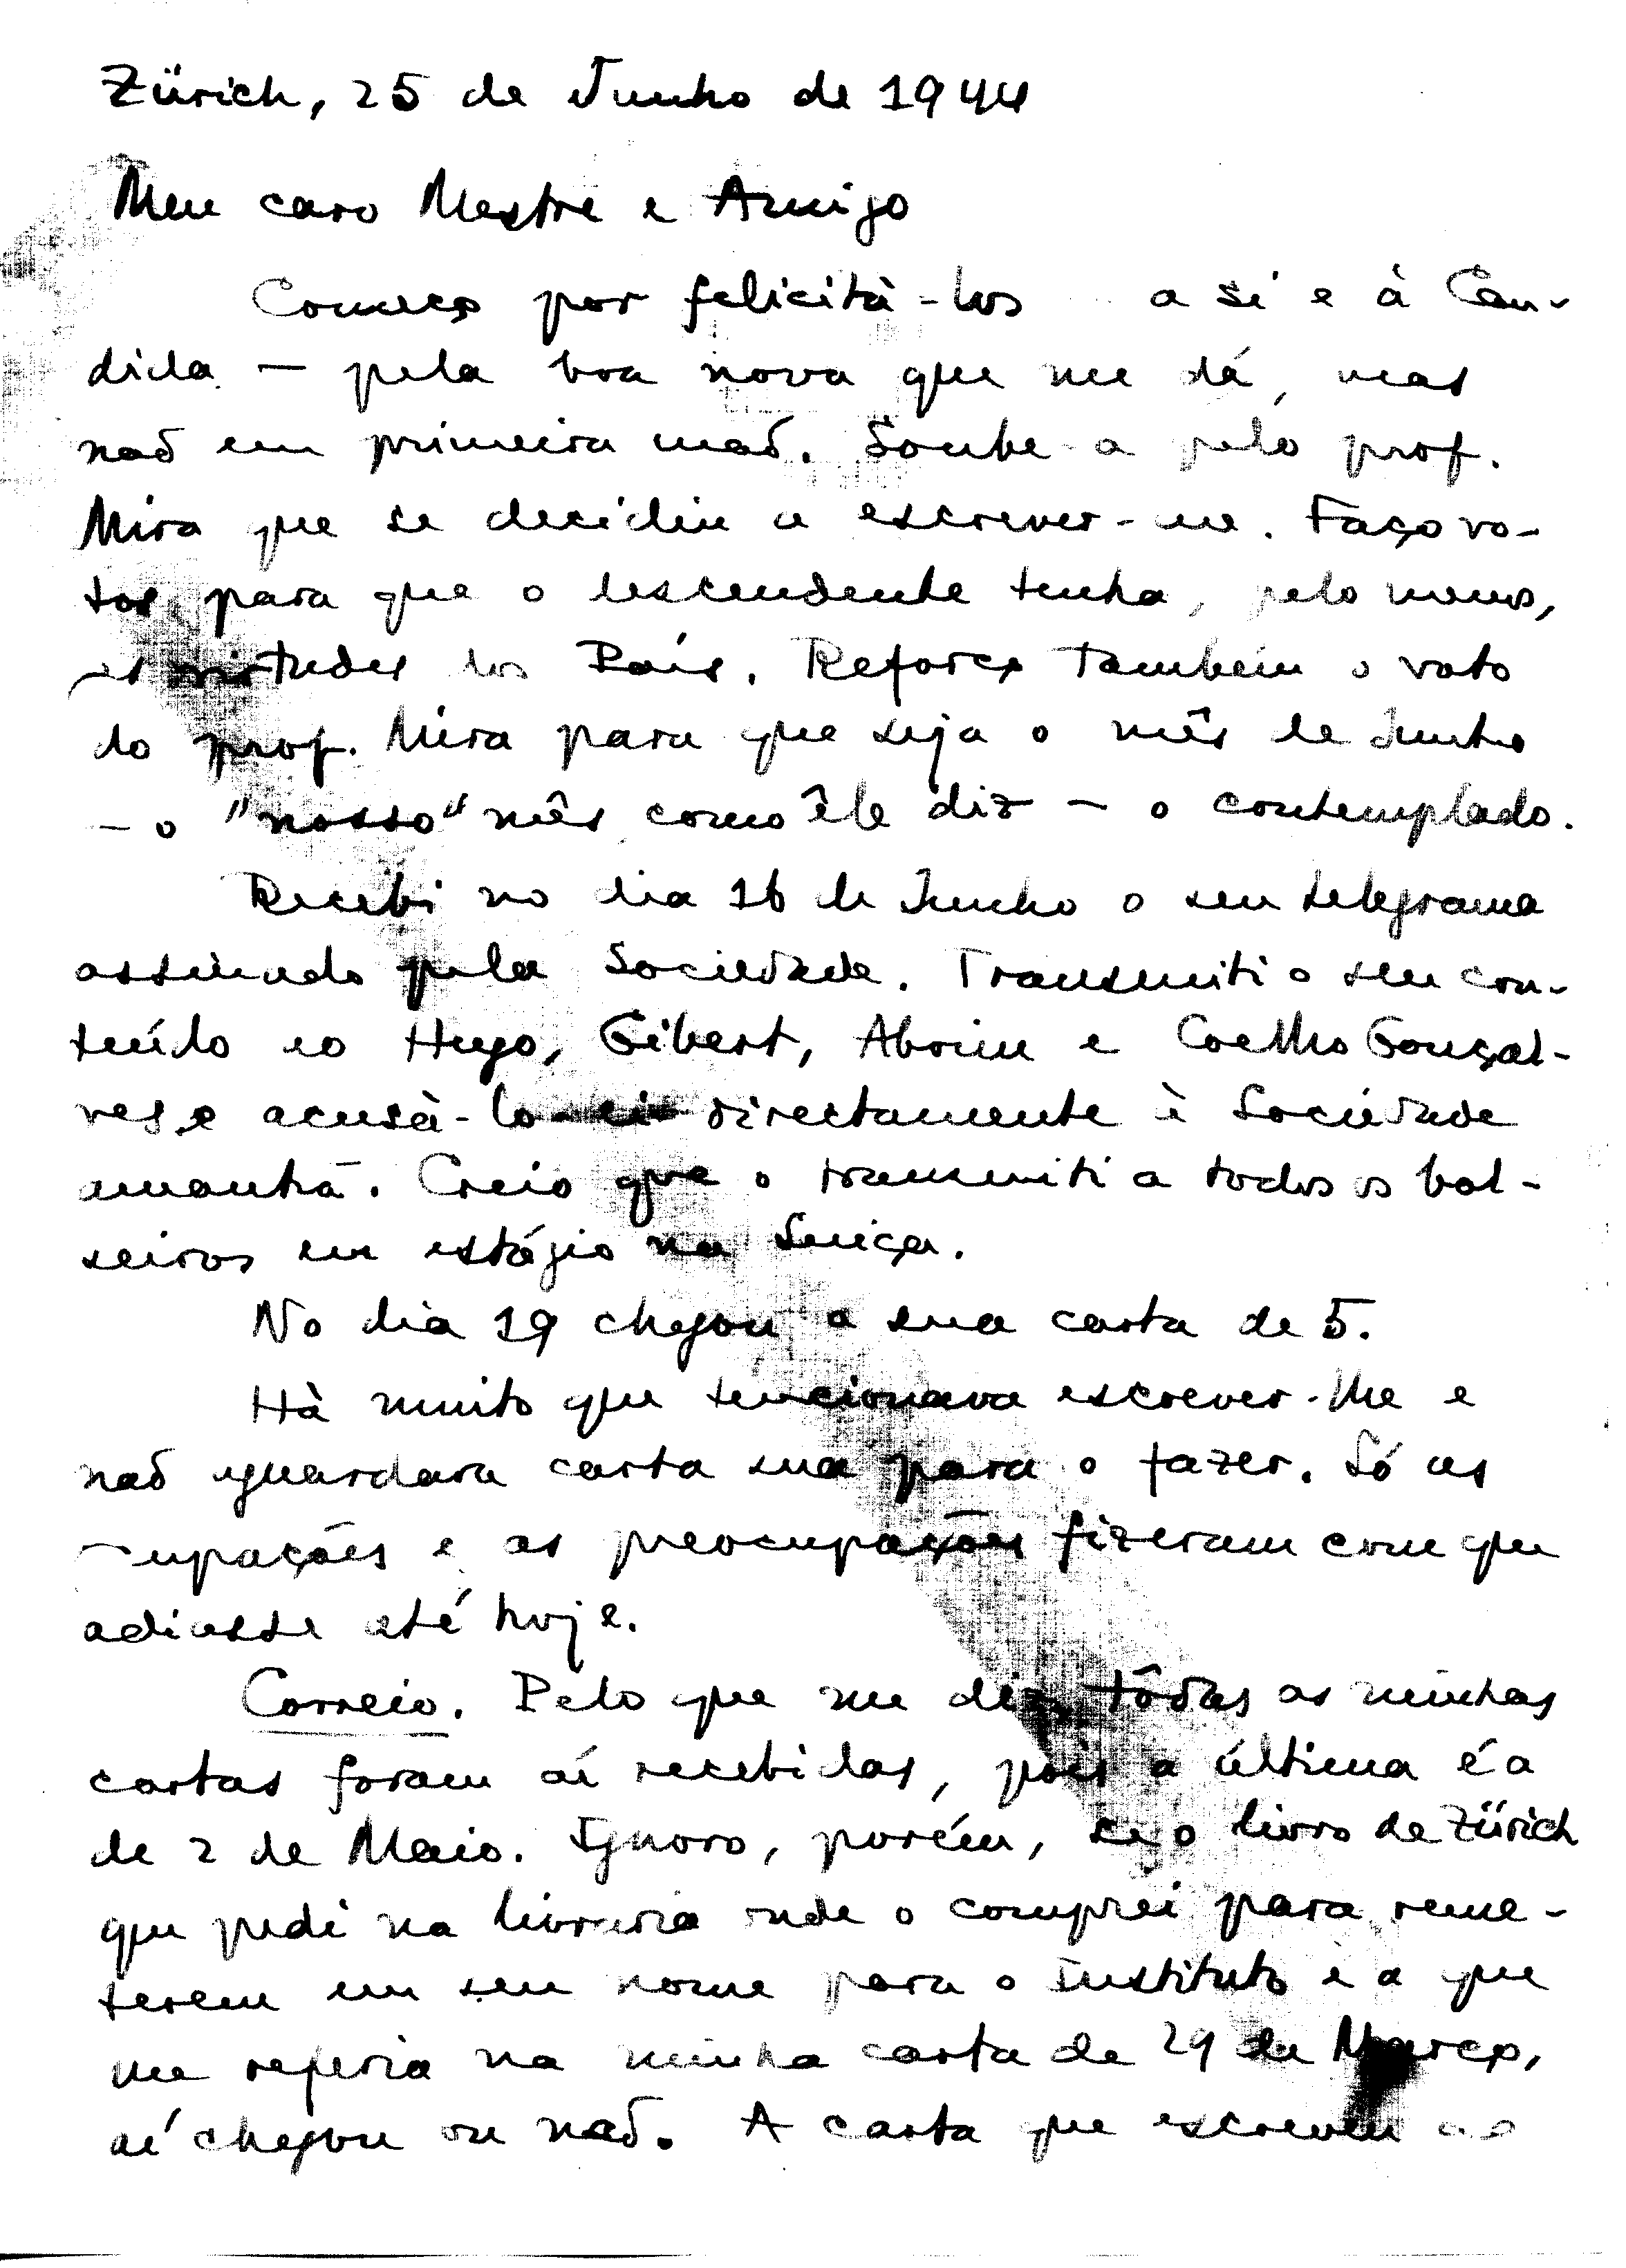 Zürich, 25 de Junho de 1944
Meu caro Mestre e Amigo
Começo por felicitá-los a si e à Cân-
dida — pela boa nova que me dá, mas
não em primeira mão. Soube-a pelo prof.
Mira que se decidiu a escrever-me. Faço vo-
tos para que o descendente tenha, pelo menos,
as virtudes dos Pais. Reforço também o voto
do prof. Mira para que seja o mês de Junho
— o "nosso" mês como êle diz — o contemplado.
Recebi no dia 16 de Junho o seu telegrama
assinado pela Sociedade. Transmiti o seu con-
teúdo ao Hugo, Gibert, Aboim e Coelho Gonçal-
ves e acusá-lo-ei directamente à Sociedade
amanhã. Creio que o transmiti a todos os bol-
seiros em estágio na Suiça.
No dia 19 chegou a sua carta de 5.
Há muito que tencionava escrever-lhe e
não aguardara carta sua para o fazer. Só as
cupações e as preocupações fizeram com que
adiasse até hoje.
Correio. Pelo que me diz, tôdas as minhas
cartas foram aí recebidas, pois a última é a
de 2 de Maio. Ignoro, porém, se o livro de Zürich
que pedi na livraria onde o comprei para reme-
terem em seu nome para o Instituto e a que
me referia na minha carta de 29 de Março,
aí chegou ou não. A carta que escreveu ao